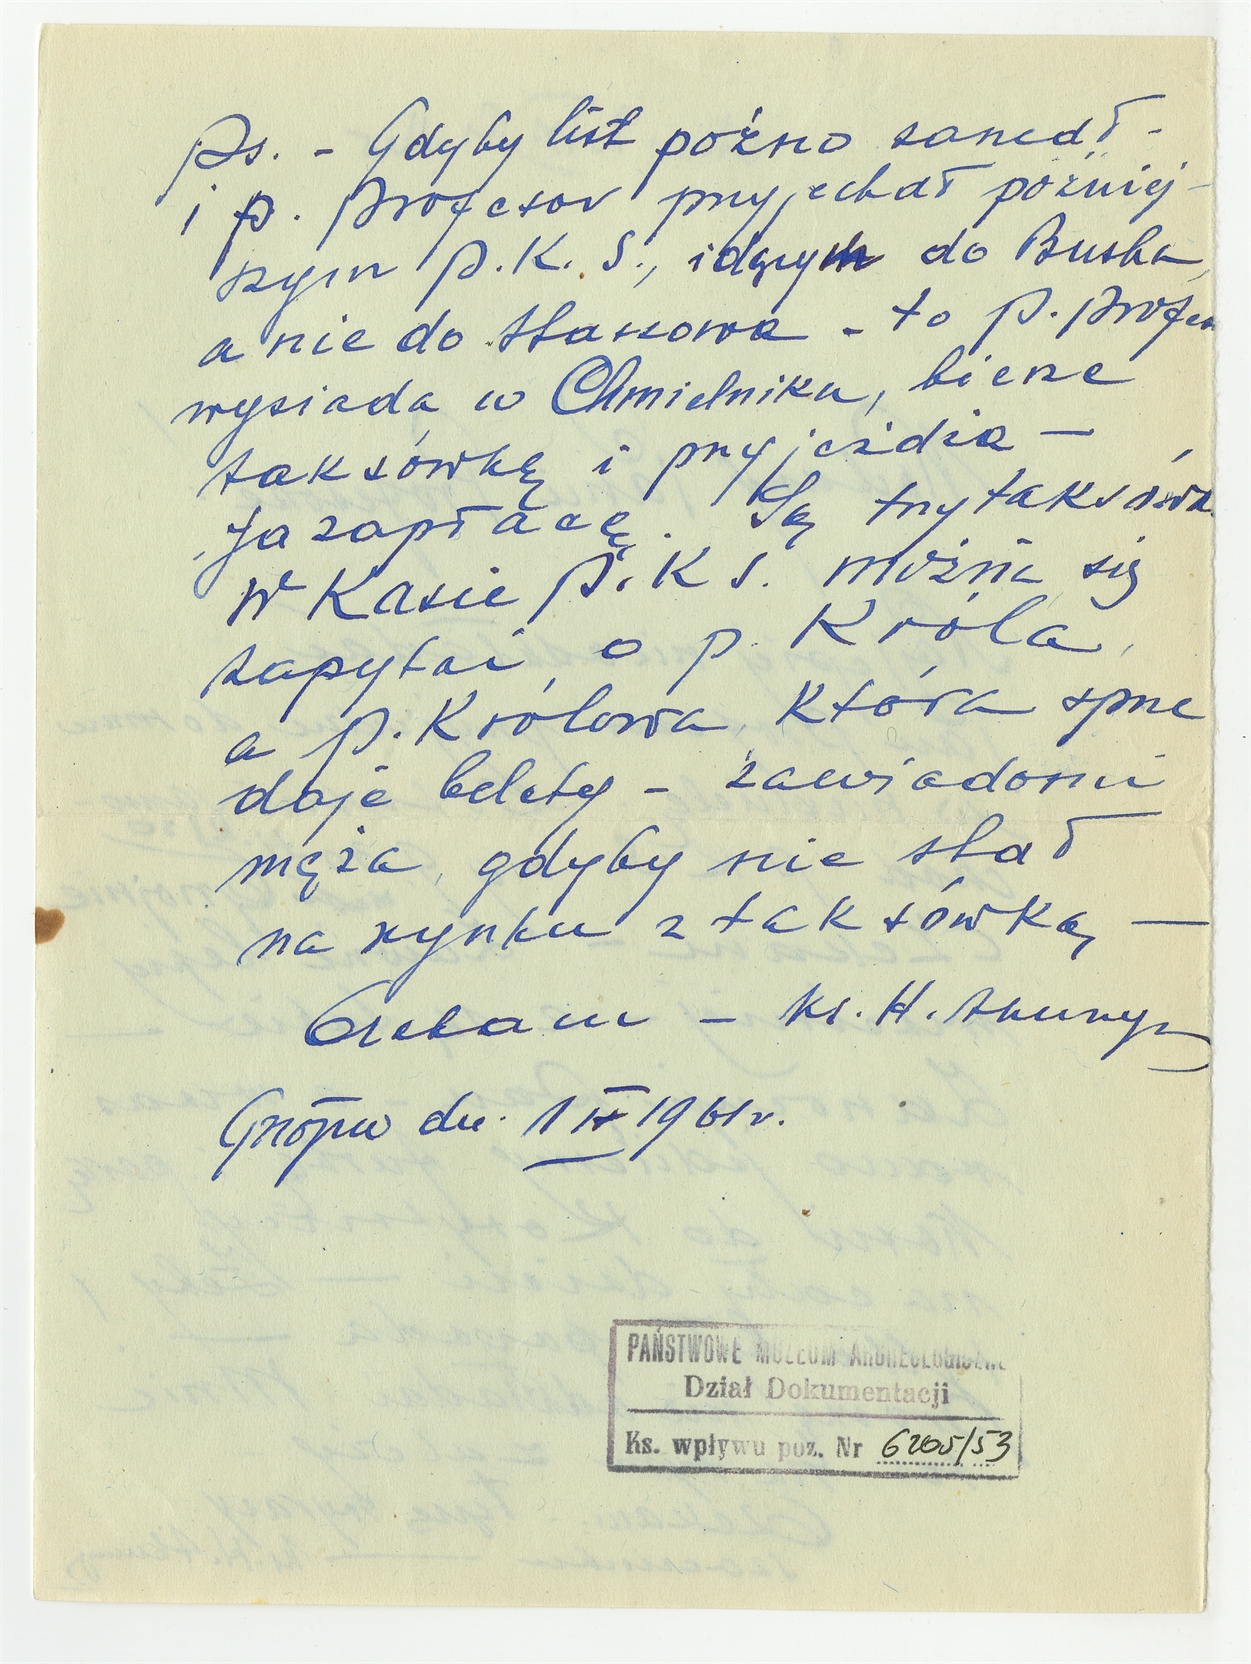 Ps. - Gdyby list późno zaszedł -
i p. Profesor przyjechał później-
szym P.K.S., idącym do Buska,
a nie do Staszowa - to p. Profesor
wysiada w Chmielniku, bierze
taksówkę i przyjeżdża —
Ja zapłacę. Są trzy taksówki.
W Kasie P.K.S. można się
zapytać o p. Króla,
a p. Królowa, która sprze
daje bilety - zawiadomi
męża, gdyby nie stał
na rynku z taksówką —
Czekam - ks. H.
dn. 1 IV 1961 r.
PAŃSTWOWE MUZEUM ARCHEOLOGICZNE
Dział Dokumentacji
Ks. wpływu poz. Nr 6205/53